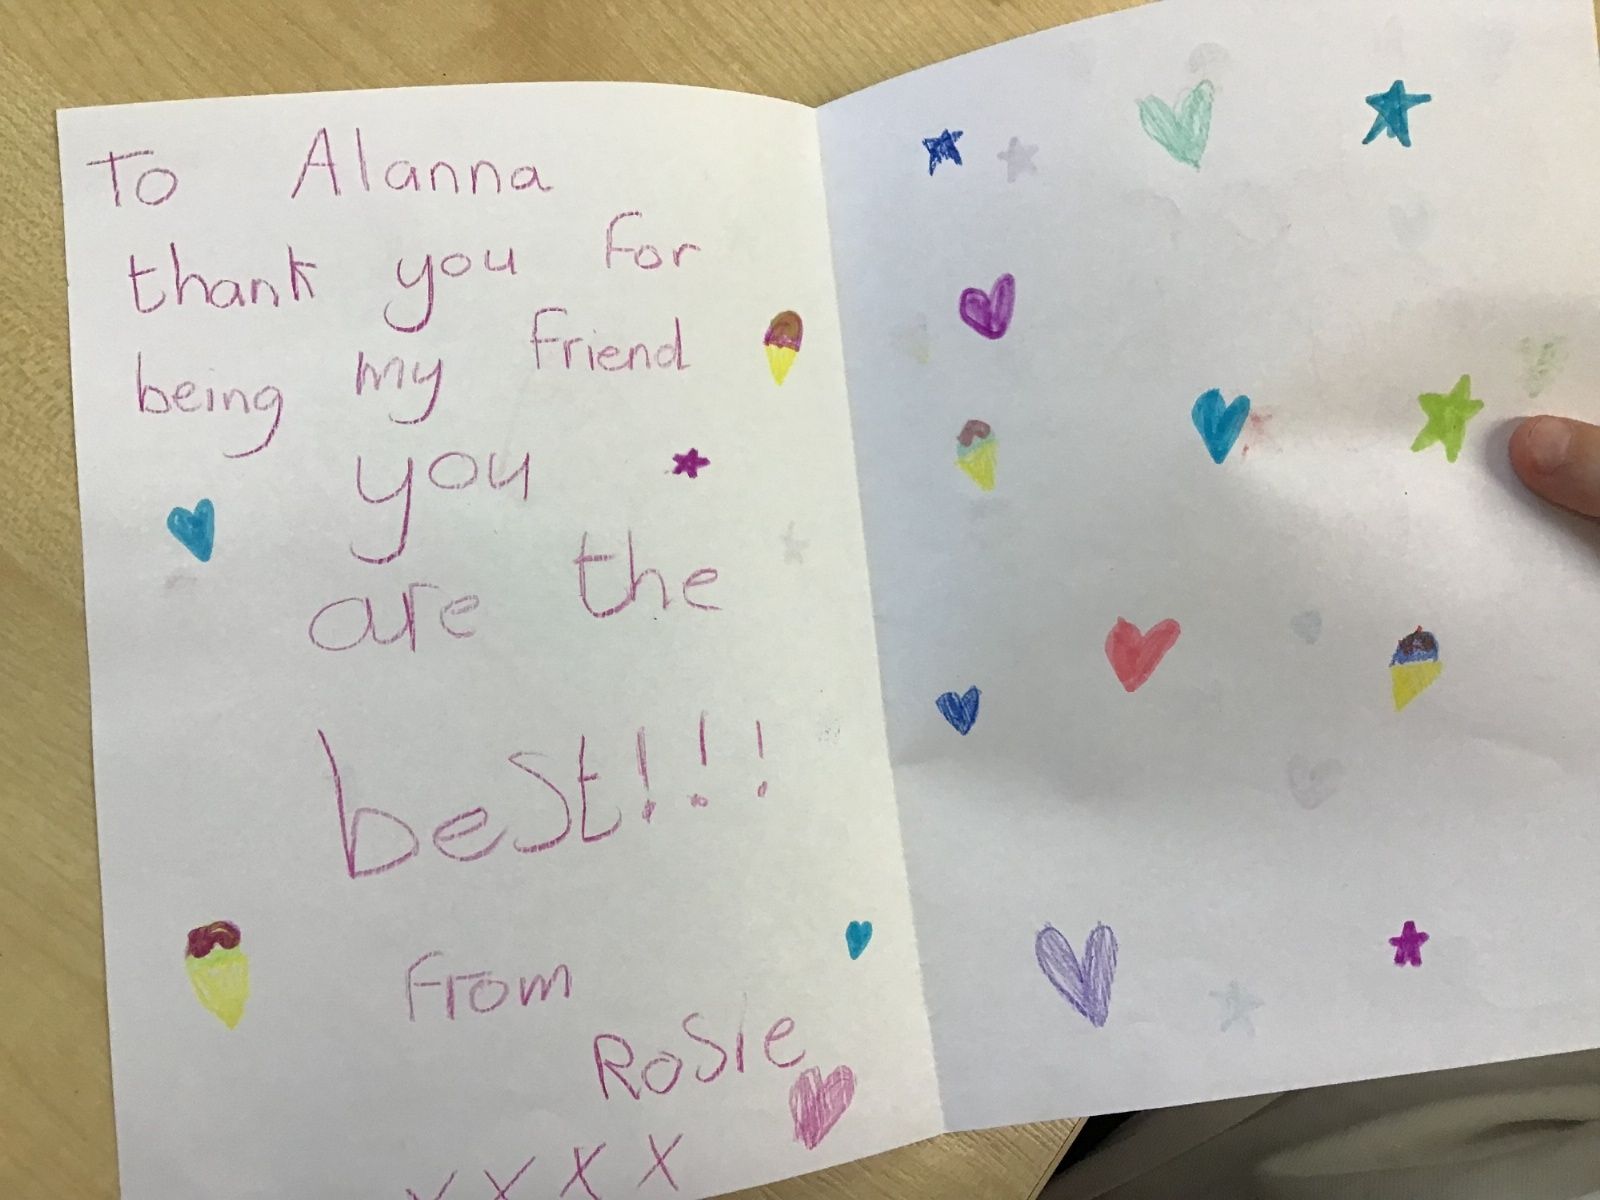 To Alanna
thank you for
being my friend
you
are the
best!!!
from
Rosie
x x x x